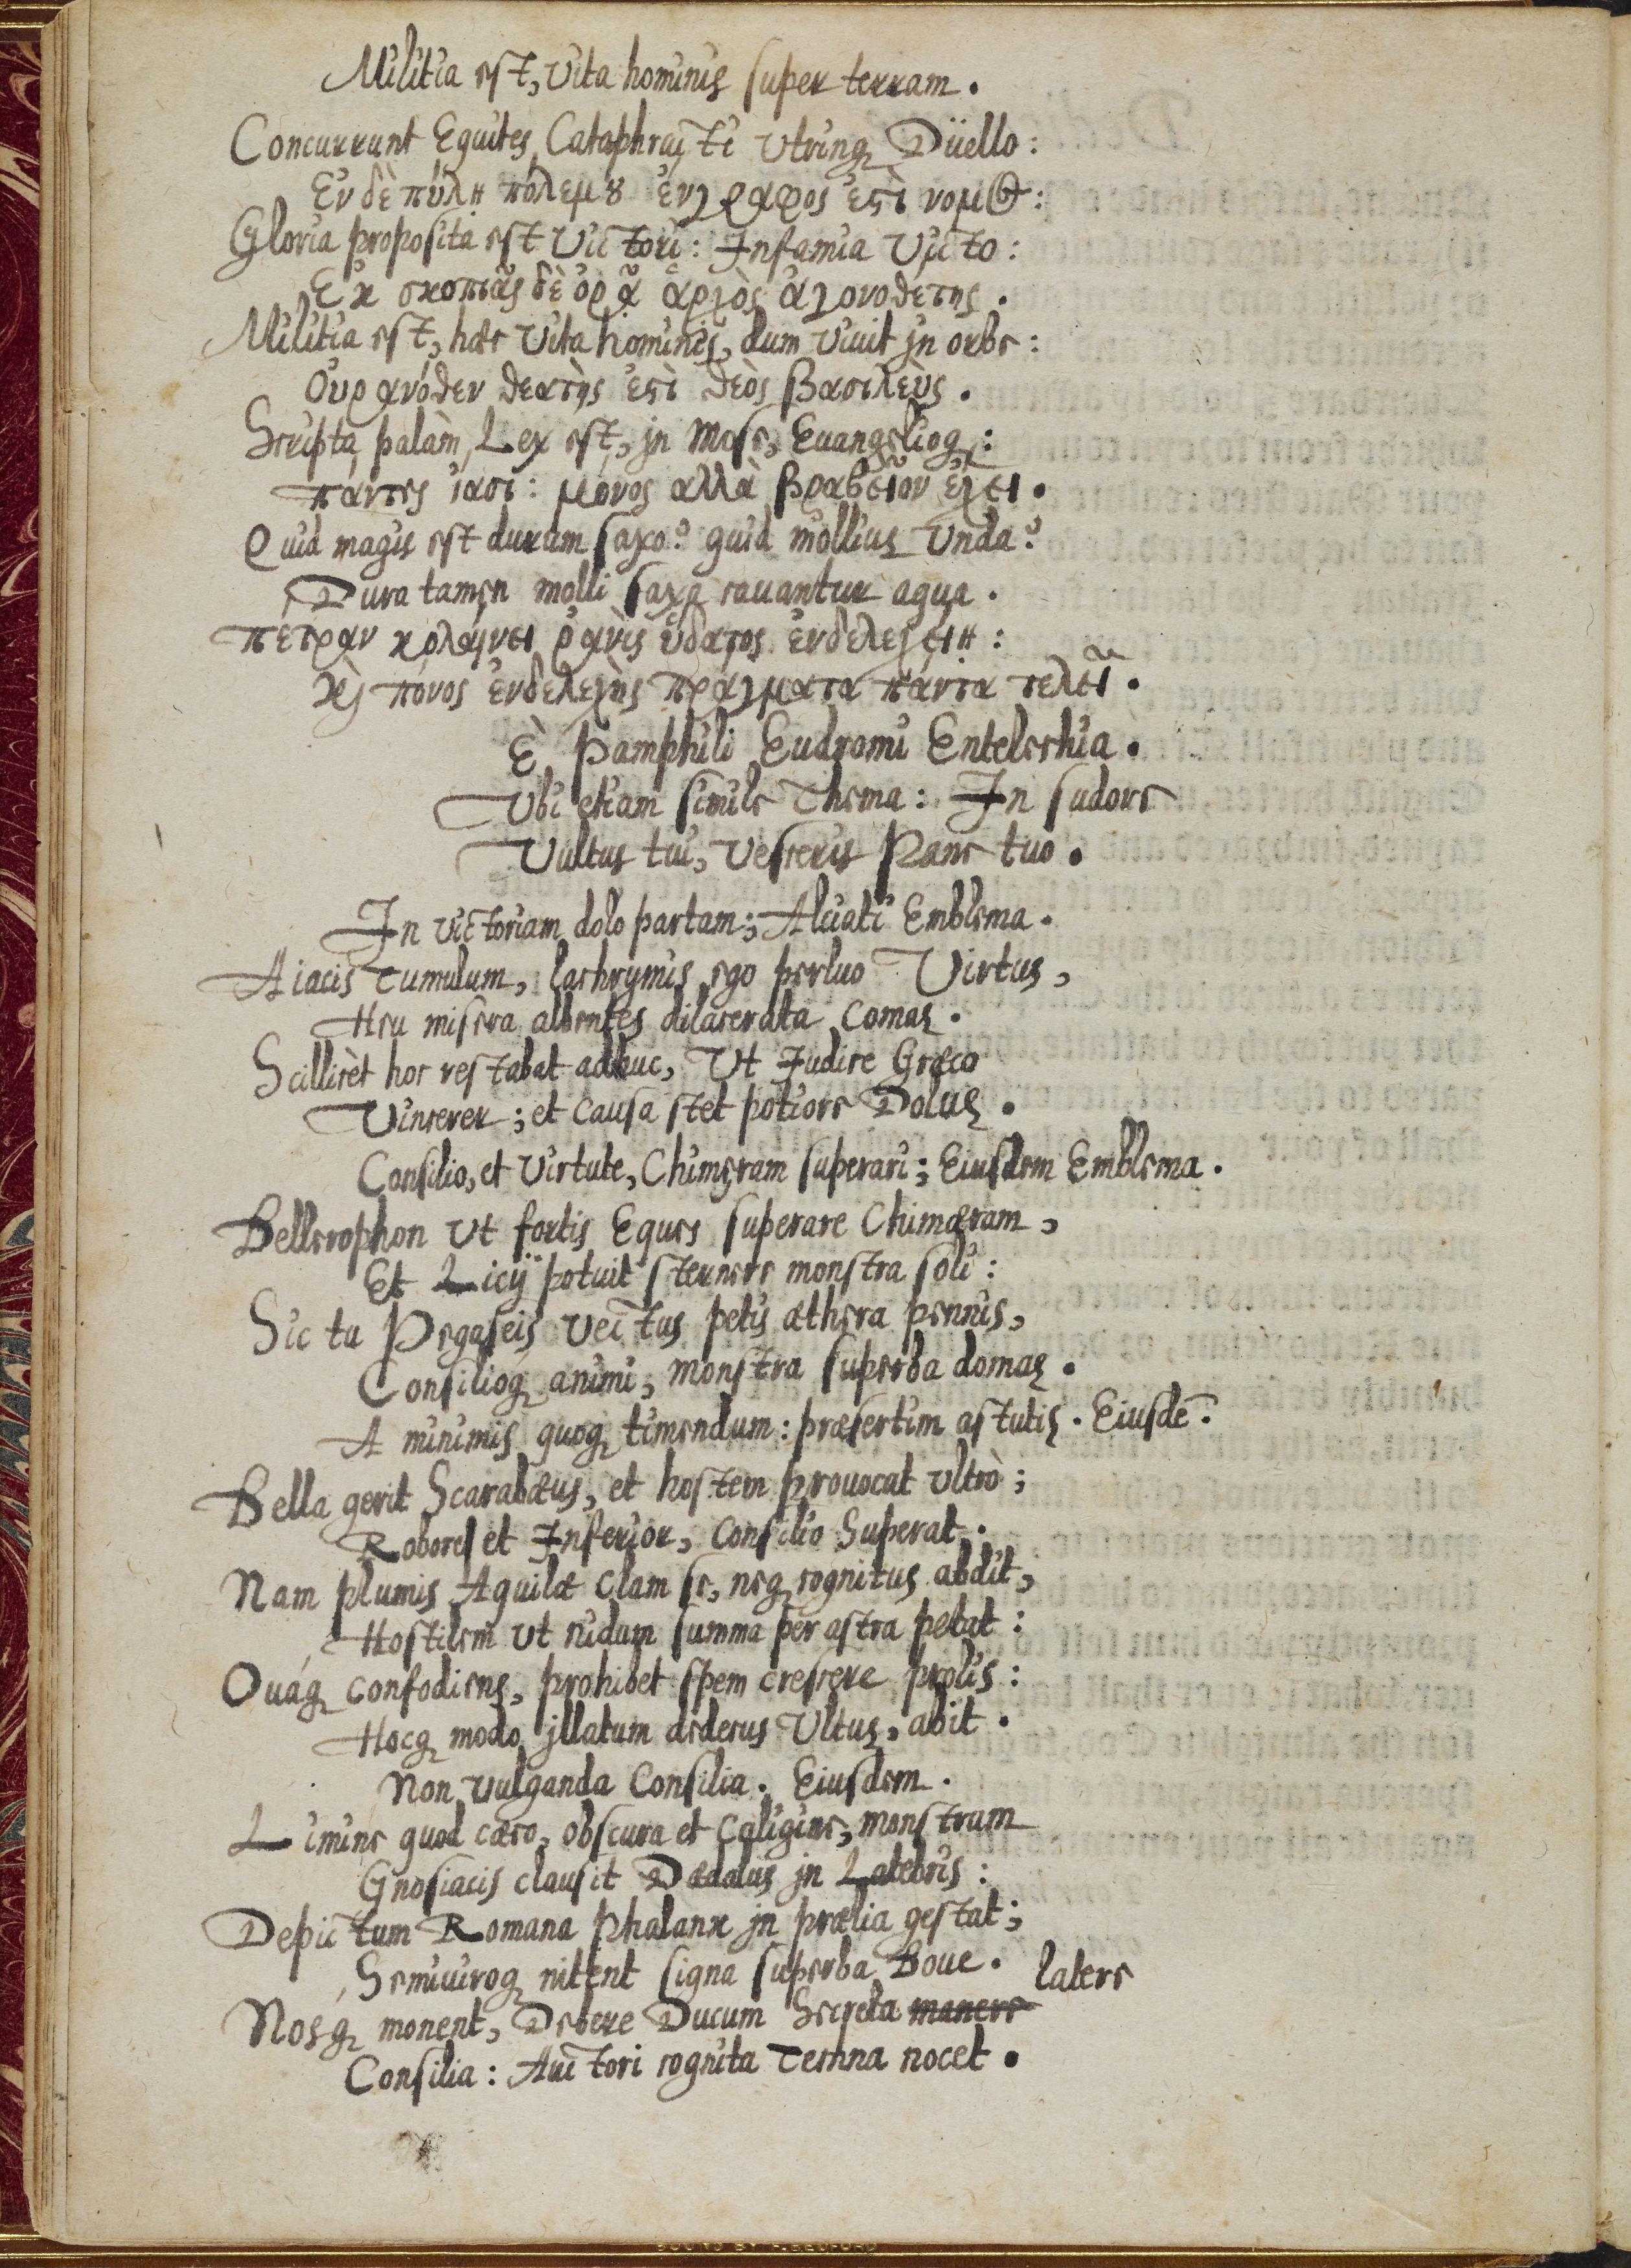 Militia est, Vita hominis super terram.
Concurrunt Equites Cataphracti Vtrinq Düello:
Ἐν δὲ πύλη πόλεμȣ ἐνγραφος ἐϛὶ νομος:
Gloria proposita est Victori: Infamia Victo:
Ἐκ σκοπιᾶς δὲ ὁρᾷ ἀρχὸς ἀγονοθετης.
Militia est, hæc Vita hominis, dum Viuit jn orbe:
Οὐρανόθεν θεατὴς ἐϛὶ θεὸς βασιλεὺς.
Scripta palàm Lex est, jn Mose, Euangelioq:
πάντες ἴασι: μόνος αλλὰ βραβεῖον ἔχει.
Quid magis est durum saxo? quid mollius Vnda?
Dura tamen molli saxa cauantur aqua.
πετραν κολαίνει ῥανὶς ὕδατος ἐνδελεχείη:
κὶ πόνος ἐνδελεχὴς πράγματα πάντα τελεῖ.
È Pamphili Eudromi Entelechia.
Vbi etiam simile Thema: In sudore
Vultus tui, Vesceris Pane tuo.
In victoriam dolo partam; Alciati Emblema.
Aiacis Tumulum, lachrymis ego perluo Virtus,
Heu misera albentes dilacerata Comas.
Scillicèt hoc restabat adhuc, Vt Judice Græco
Vincerer; et Causa stet potiore Dolus.
Consilio, et Virtute, Chimęram superari; Eiusdem Emblema.
Bellerophon Vt fortis Eques superare Chimæram,
Et Licij potuit sternere monstra soli:
Sic tu Pegaseis Vectus petis æthera pennis,
Consilioq animi, monstra superba domas.
A minimis quoq timendum: præsertim astutis. Eiusdē.
Bella gerit Scarabæus, et hostem prouocat Vltrò;
Robore et Inferior, Consilio Superat.
Nam plumis Aquilæ Clam se, neq cognitus abdit,
Hostilem Vt nidum summa per astra petat:
Ouáq confodiens, prohibet spem crescere prolis:
Hocq modo jllatum dedecus Vltus, abit.
Non vulganda Consilia. Eiusdem.
Limine quod cæco, obscura et Caligine, monstrum
Gnosiacis clausit Dædalus jn Latebris:
Depictum Romana Phalanx jn prælia gestat;
Semiuiroq nitent signa superba Boue.
latere
Nosq monent, Debere Ducum Secreta manere
Consilia: Auctori cognita Techna nocet.